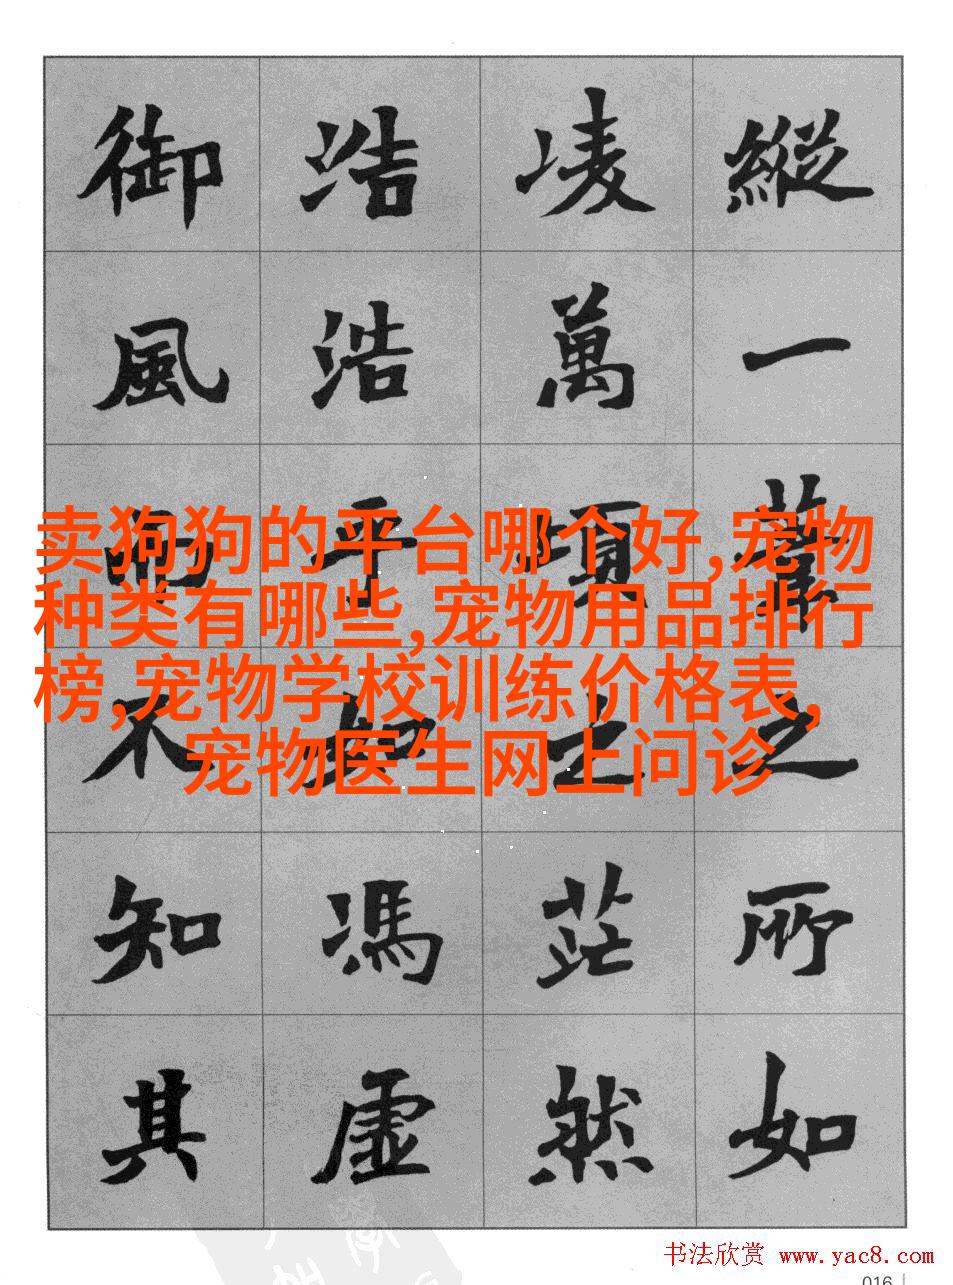 縱一葦之所如
凌萬頃之茫然
浩浩乎如馮虛
御風而不知其
卖狗狗的平台哪个好,宠物
种类有哪些,宠物用品排行
榜,宠物学校训练价格表,
宠物医生网上问诊
书法欣赏 www.yac8.com
016